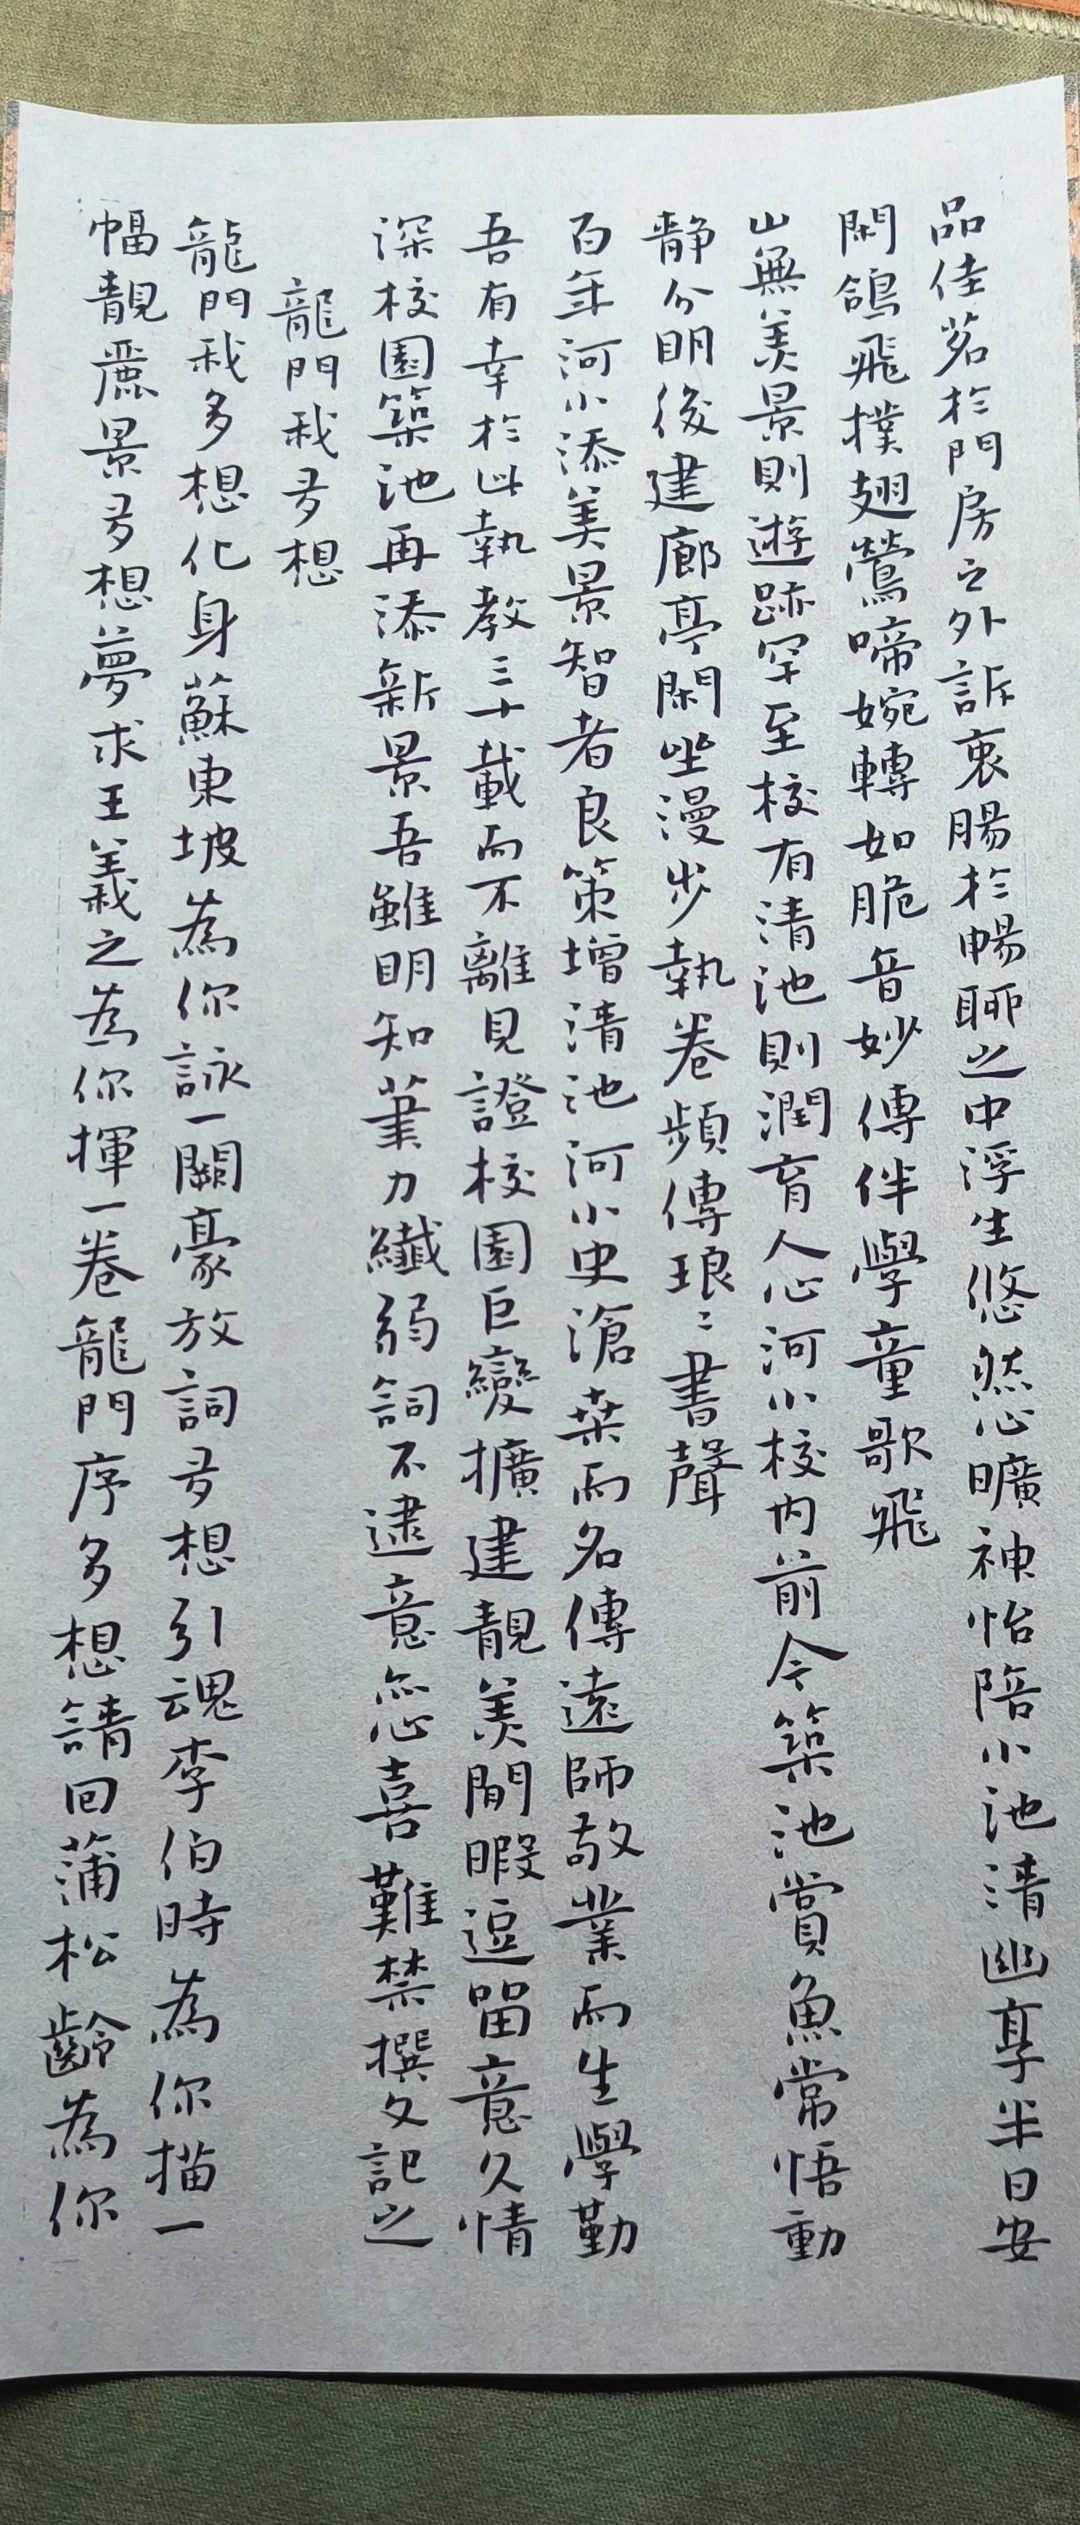 品佳茗於門房之外訴衷腸於暢聊之中浮生悠然心曠神怡陪小池清幽享半日安
閑鴿飛撲翅鶯啼婉轉如脆音妙傳伴學童歌飛
山無美景則遊跡罕至校有清池則潤育人心河小校内前今築池賞魚常悟動
靜分明後建廊亭閑坐漫步執卷頻傳琅〻書聲
百年河小添美景智者良策增清池河小史滄桑而名傳遠師敬業而生學勤
吾有幸於此執教三十載而不離見證校園巨變擴建靚美閒暇逗留意久情
深校園築池再添新景吾雖明知筆力纖弱詞不逮意然心喜難禁撰文記之
龍門我多想
龍門我多想化身蘇東坡為你詠一闋豪放詞多想引魂李伯時為你描一
幅靚麗景多想夢求王羲之為你揮一卷龍門序多想請回蒲松齡為你